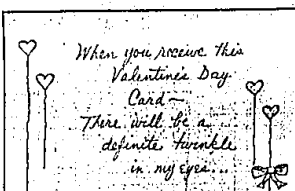 When you receive this
Valentine's Day
Card—
There will be a
definite twinkle
in my eyes...